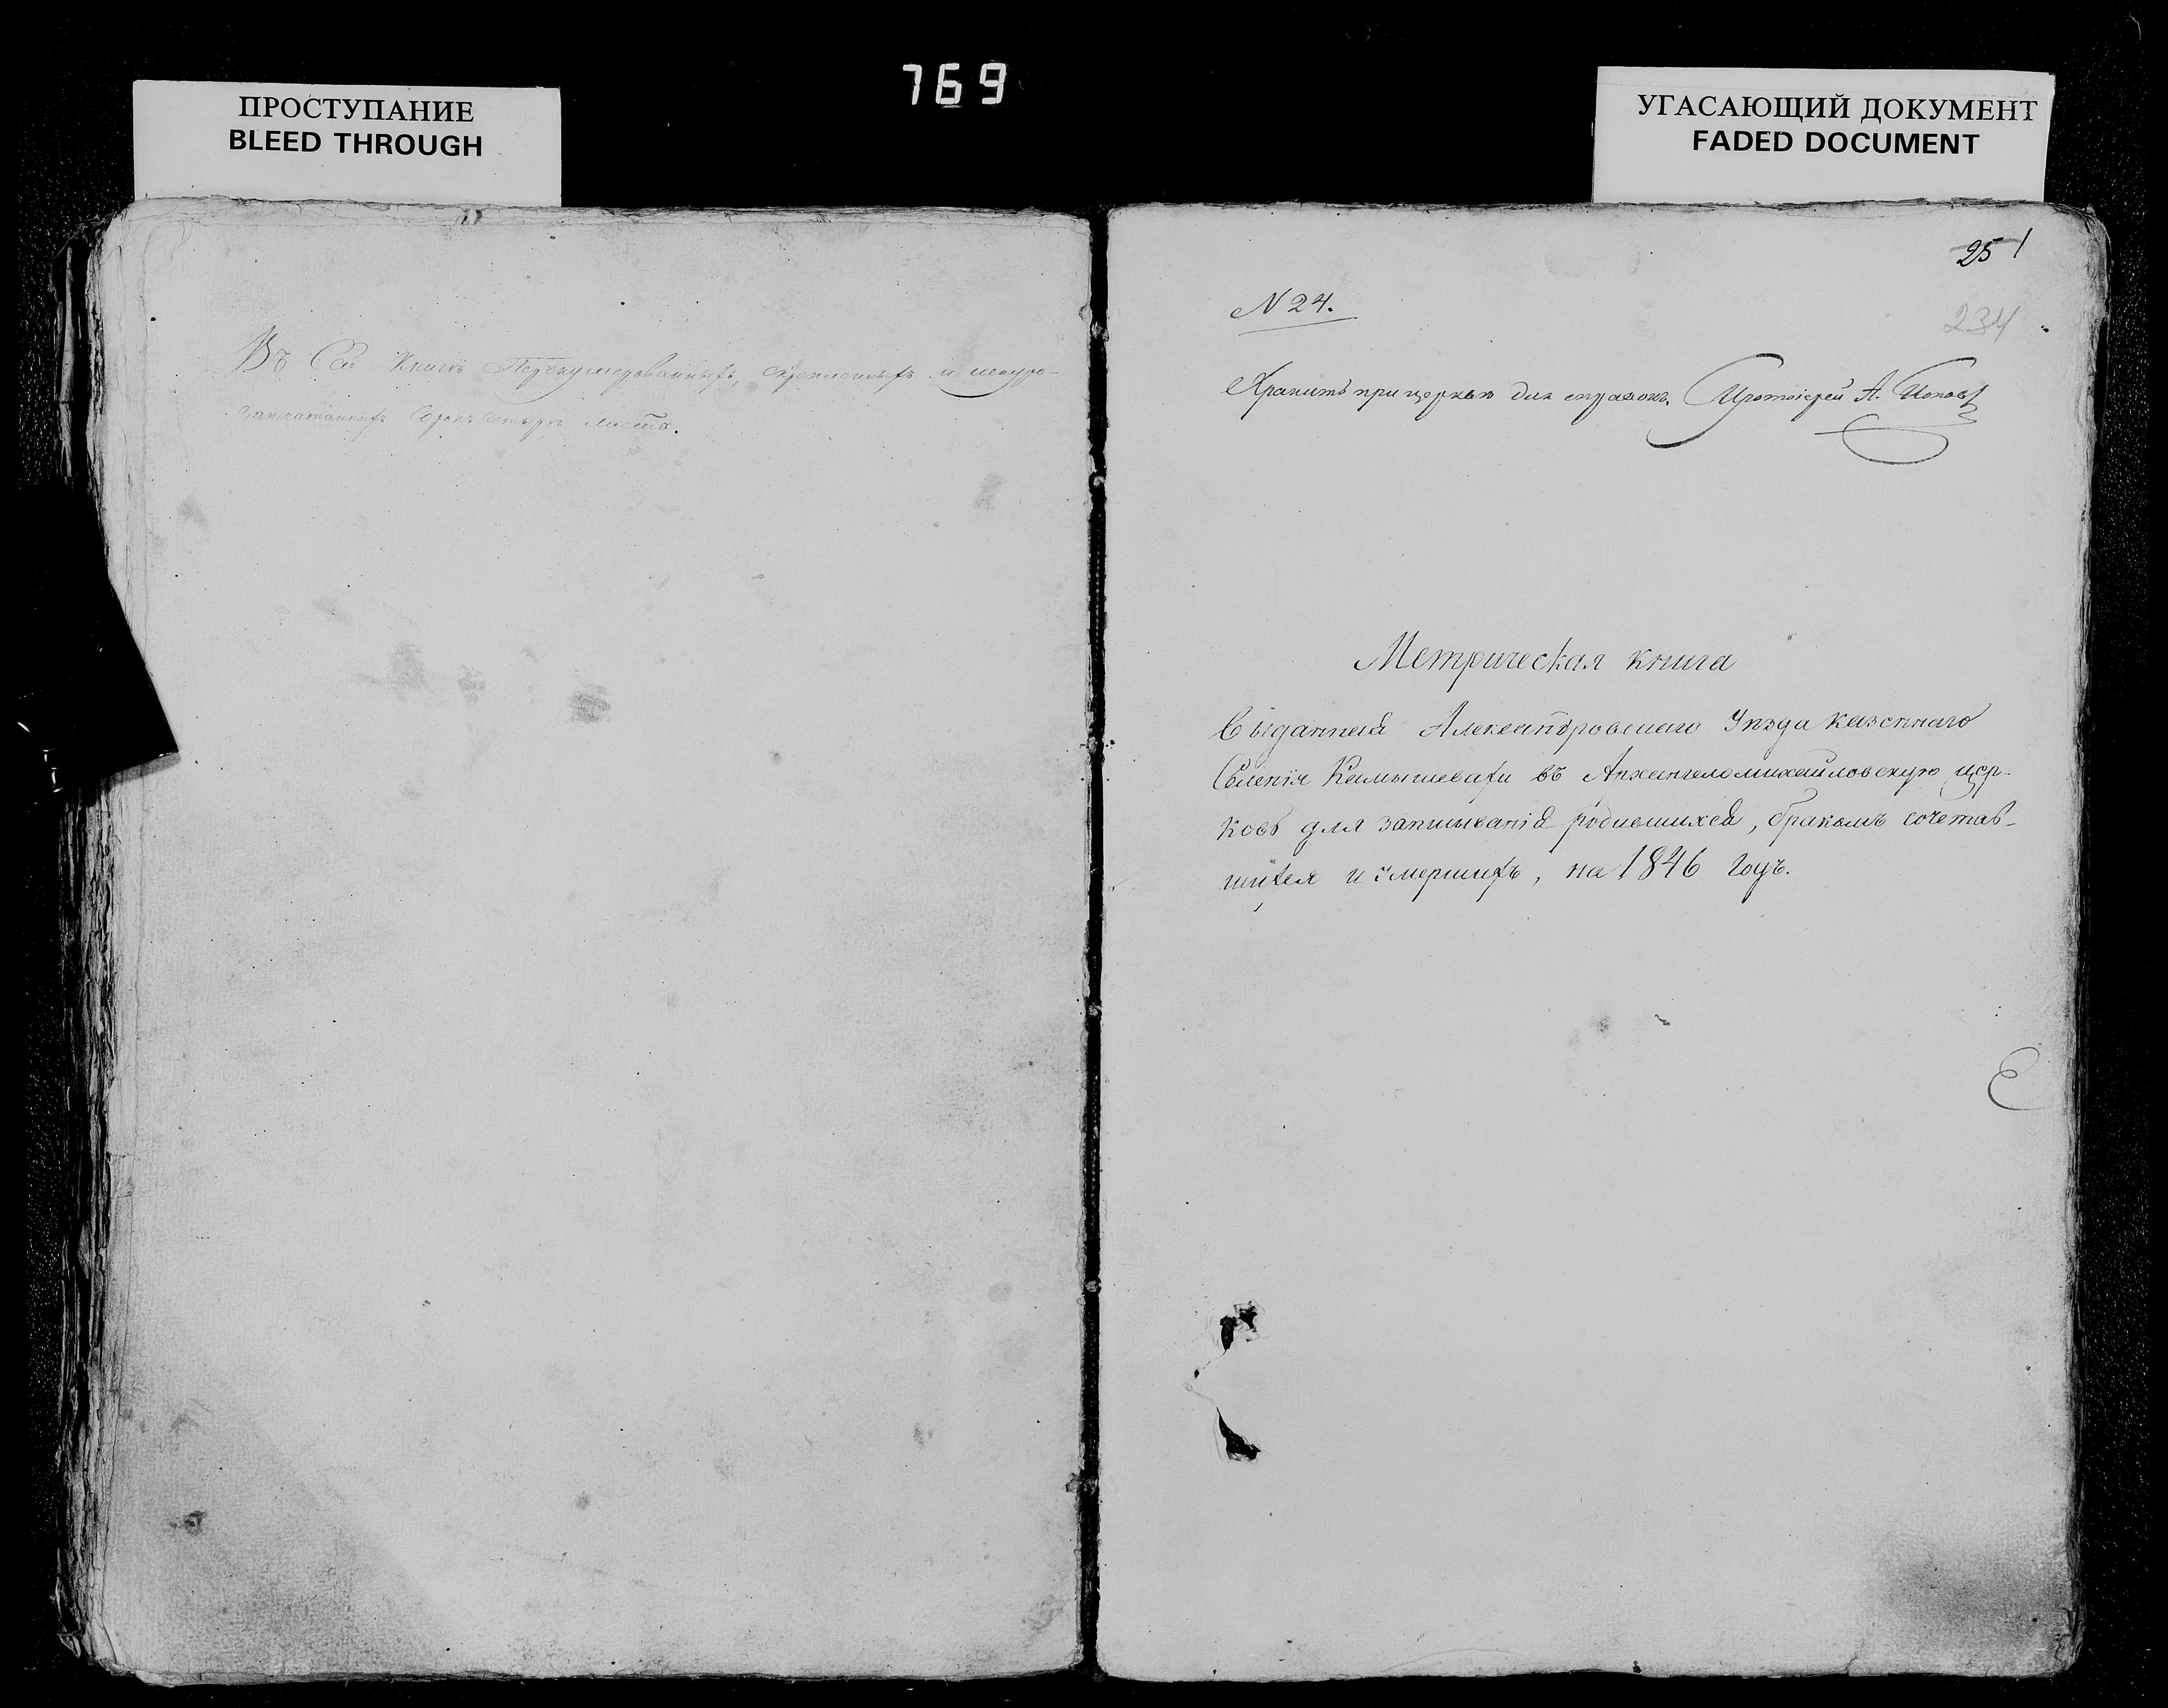 769
ПРОСТУПАНИЕ
BLEED THROUGH
УГАСАЮЩИЙ ДОКУМЕНТ
FADED DOCUMENT
Въ Сей Книгѣ Перенумерованныхъ, скрепленныхъ и
Сорокъ четыре листа.
25 1
234
N 24.
Хранить при церкви для справокъ. Протоіерей А. Поповъ
Метрическая книга
Выданная Александровскаго Уѣзда казеннаго
Селенія Камышевахи въ Архангеломихайловскую цер-
ковь для записыванія родившихся, бракомъ сочетав-
шихся и умершихъ, на 1846 годъ.